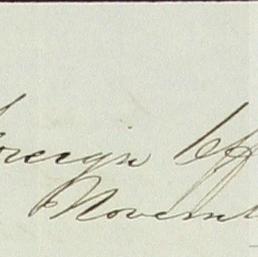 oreign Off
Novem